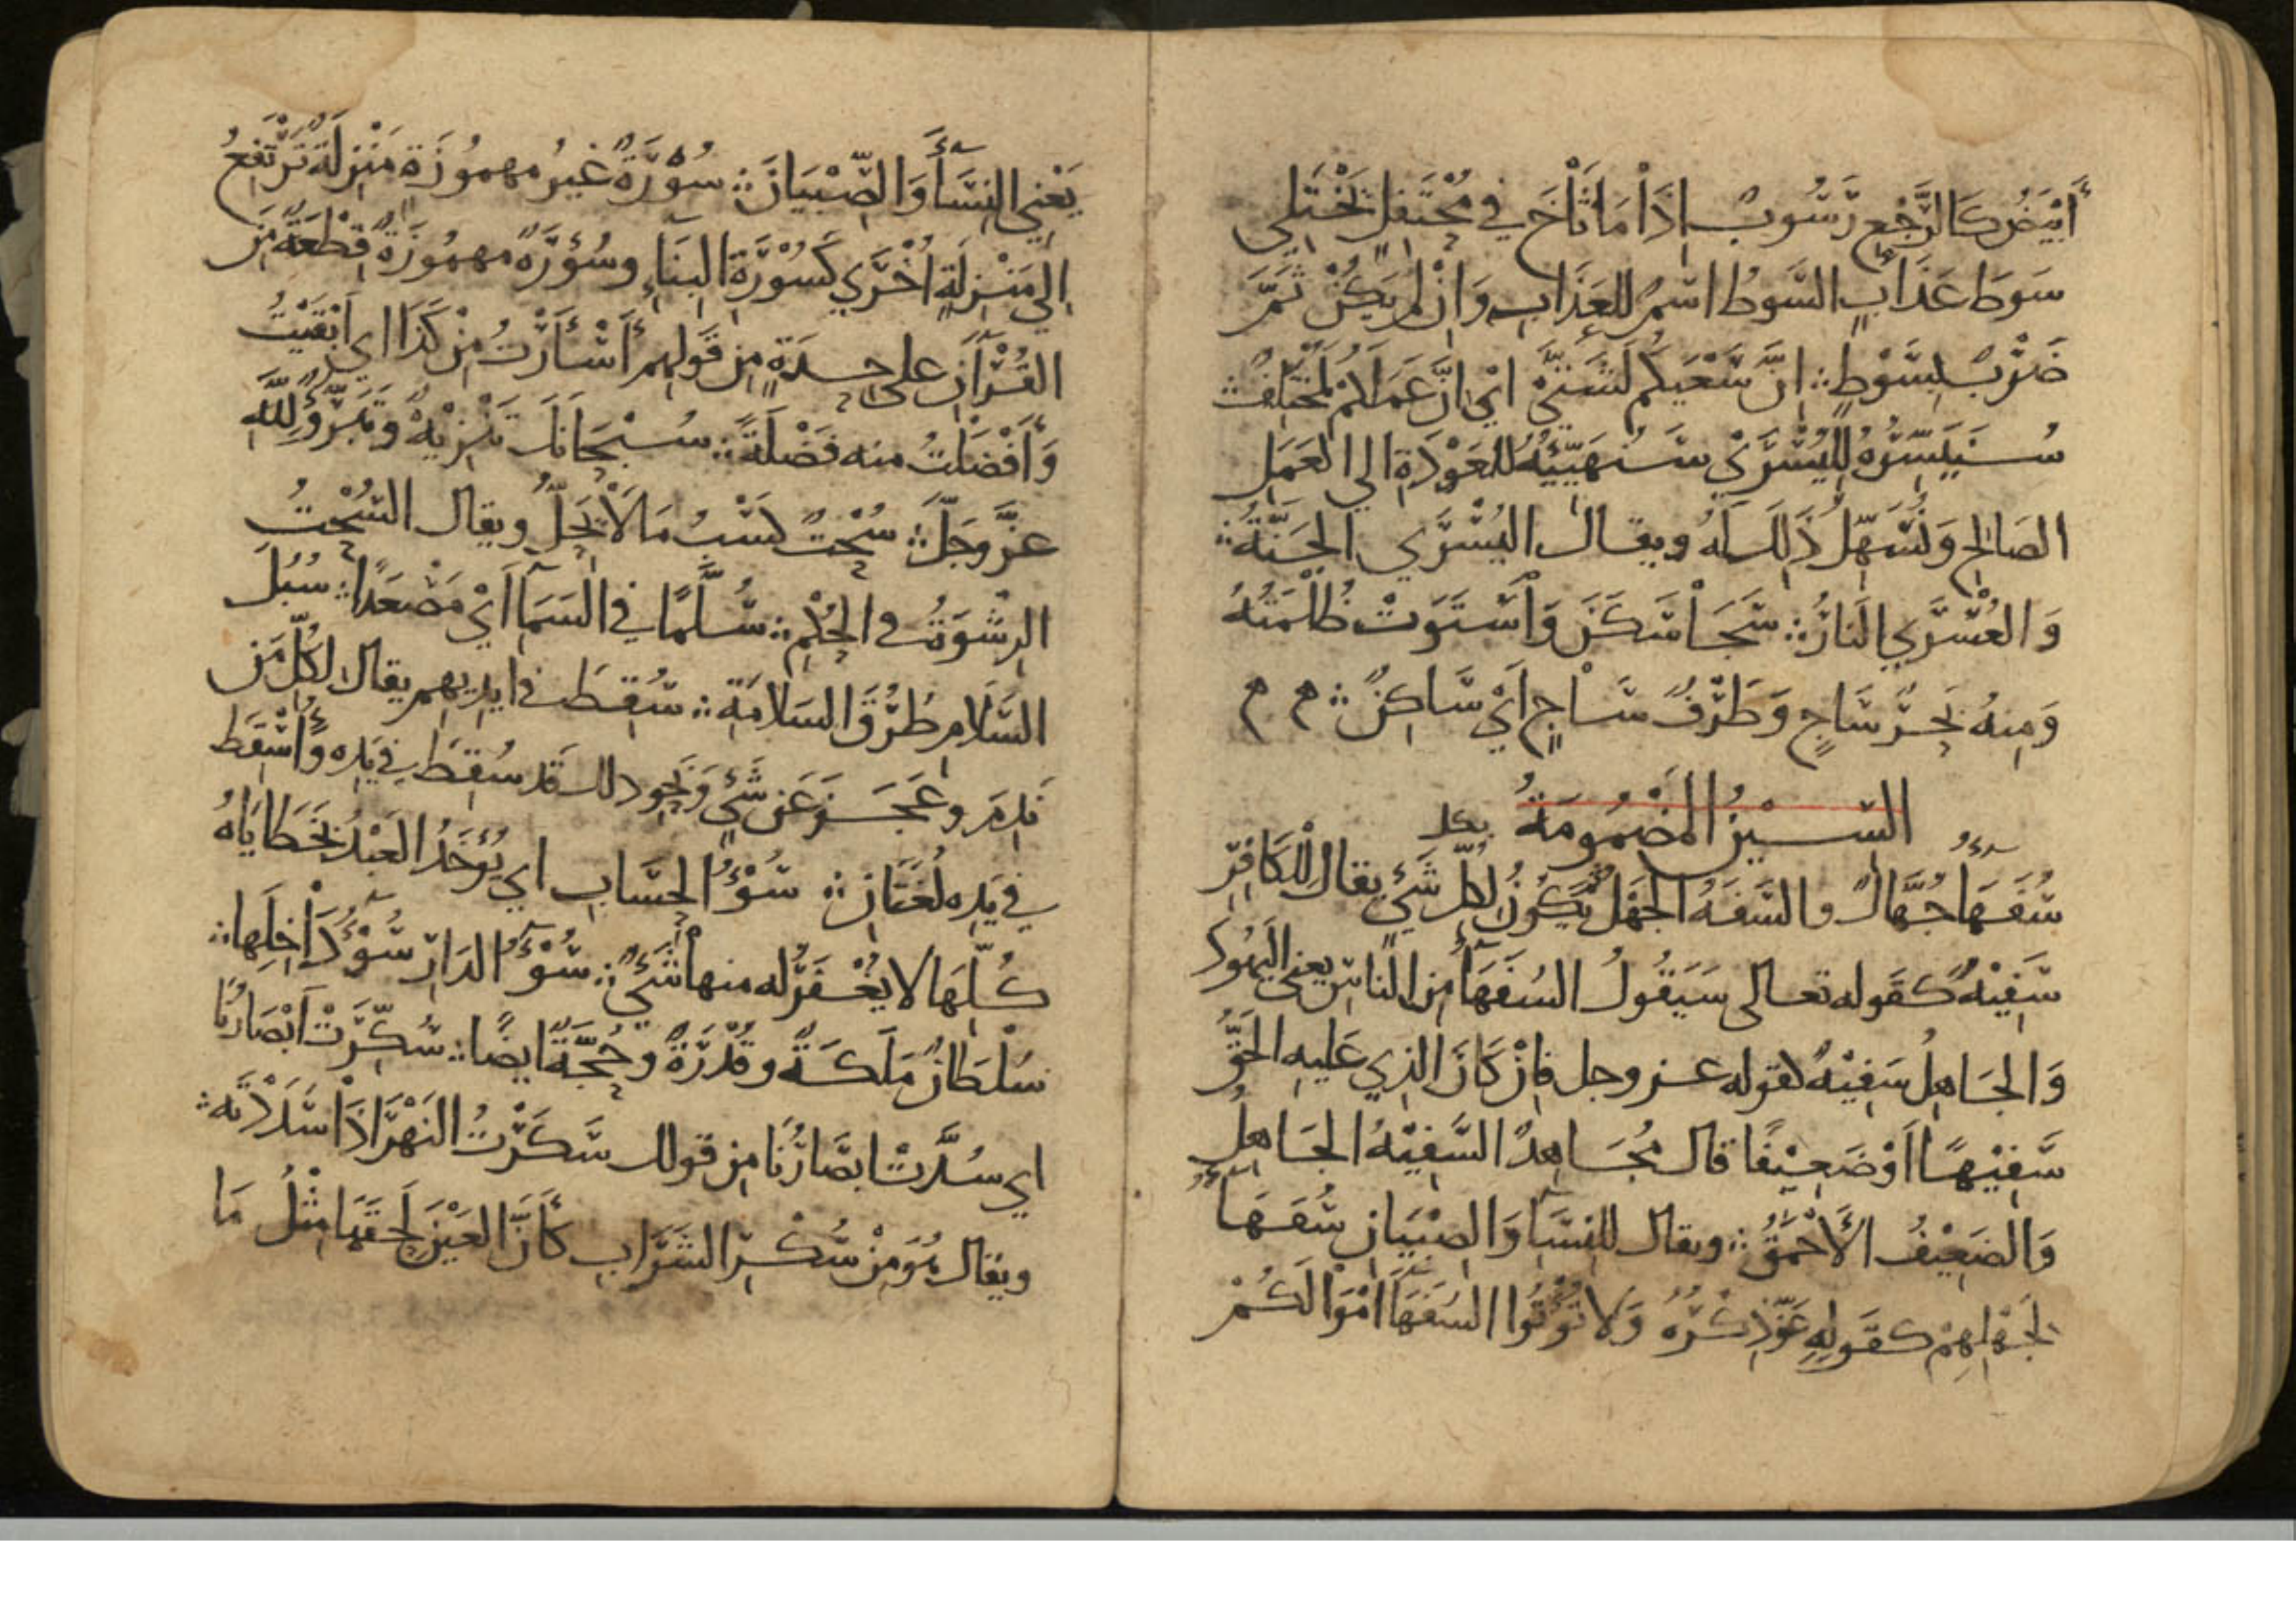 أَبْيَضُ كَالرَّجْعِ رَسُوبٌ إِذَا مَا ثَاخَ فِي مُحْتَفَلٍ يَخْتَلِي
سَوطَ عَذَابٍ السَّوطُ اسْمٌ للعَذَابِ وَإِنْ لم يَكُنْ ثَمَّ
ضَرْبٌ بِسَوْطٍ ۞ إِنَّ سَعْيَكُم لَشَتَّى اي إِنَّ عَمَلَكُمْ لَمُخْتَلِفٌ ۞
سَنُيَسِّرُهُ لِلْيُسْرَي سَنُهَيِّئُهُ للعَوْدَةِ الي العَمَلِ
الصَالِحِ وَنُسَهِّلُ ذَلِكَ لَهُ ويقال اليُسْرَي الجَنَّةُ ۞
وَالعُسْرَي النَارُ ۞ سَجَا سَكَنَ وَاسْتَوَتْ ظُلْمَتُهُ
وَمِنهُ بَحْرٌ سَاجٍ وَطَرْفٌ سَاجٍ أَيْ سَاكِنٌ ۞ م م
السِّيْنُ المَضْمُومَةُ
سُفَهَآءُ جُهَّالٌ والسَّفَهُ الجَهْلُ ثُمَّ يَكُونُ لِكُلِّ شَيْءٍ يقال لِلْكَافِرِ
سَفِيْهٌ كَقَوله تعالى سَيَقُولُ السُفَهَآءُ مِنَ النَاسِ يعني اليَهُودَ
وَالجَاهِلُ سَفِيْهٌ لقوله عز وجل فَإِنْ كَانَ الذِي عَلَيهِ الحَقُّ
سَفِيْهًا أَوْ ضَعِيْفًا قال مُجَاهِدٌ السَّفِيْهُ الجَاهِلُ
وَالضَعِيْفُ الأَحْمَقُ ۞ ويقال للنِسَآ وَالصِبْيَانِ سُفَهَآءُ
لِجَهْلِهِمْ كقَولِهِ عَزَّ ذِكْرُهُ وَلَا تُؤْتُوا السُفَهَآءَ أَمْوَالَكُمْ
يَعْنِي النِسَآءَ وَالصِّبْيَانَ ۞ سُوْرَةٌ غَيرُ مهموُزَةٍ مَنْزِلَةٌ تَرْتَفِعُ
الي مَنْزِلَةٍ أُخْرَي كَسُوْرَةِ البِنَآءِ وسُؤْرَةٌ مهمُوزَةٌ قِطْعَةٌ مِنَ
القُرْآنِ على حِدَةٍ مِن قَولِهِم أَسْأَرْتُ مِنْ كَذَا اي أَبْقَيْتُ
وَأَفْضَلْتُ منه فَضْلَةً ۞ سُبْحَانَكَ تَنْزِيْهٌ وَتَبَرُّؤٌ لِلَّهِ
عَزَّ وَجَلَّ ۞ سُحْتٌ كَسْبُ مَا لَا يَحِلُّ ويقال السُّحْتُ
الرِشْوَةُ في الحُكْمِ ۞ سُلَّمًا فِي السَمَآ أَيْ مَصْعَدًا ۞ سُبُلَ
السَّلَامِ طُرُقَ السَلَامَةِ ۞ سُقِطَ في ايدِيهِم يقال لكُلِّ مَن
نَدِمَ وعَجَزَ عَن شَيْءٍ وَنَحْوِ ذلك قَد سُقِطَ فِي يَدِه وَأُسْقِطَ
فِي يَدِه لُغَتَانِ ۞ سُوْءُ الحِسَابِ اي يُؤخَذُ العَبْدُ بِخَطَايَاهُ
كُلِّهَا لا يُغْفَرُ له منها شَيْءٌ ۞ سُوْٓءُ الدَارِ سُوْءُ دَاخِلِها ۞
سُلْطَانٌ مَلَكَةٌ وقُدْرَةٌ وحُجَّةٌ ايضًا ۞ سُكِّرَتْ أَبْصَارُنَا
اي سُدَّتْ ابصَارُنَا مِن قولك سَكَرْتُ النَهْرَ إِذَا سَدَدْتَه ۞
ويقال هُوَ مِنْ سُكْرِ الشَرَابِ كَأَنَّ العَيْنَ لَحِقَهَا مِثْلُ مَا